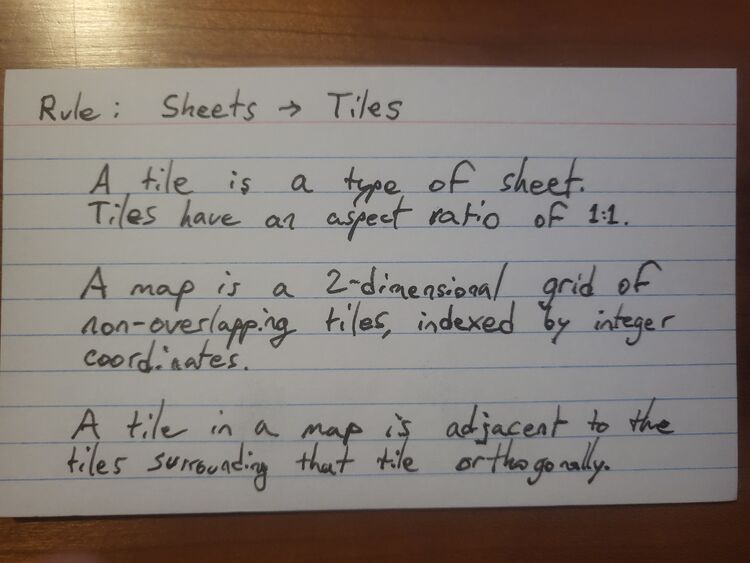 Rule: Sheets → Tiles
A tile is a type of sheet.
Tiles have an aspect ratio of 1:1.
A map is a 2-dimensional grid of
non-overlapping tiles, indexed by integer
coordinates.
A tile in a map is adjacent to the
tiles surrounding that tile orthogonally.